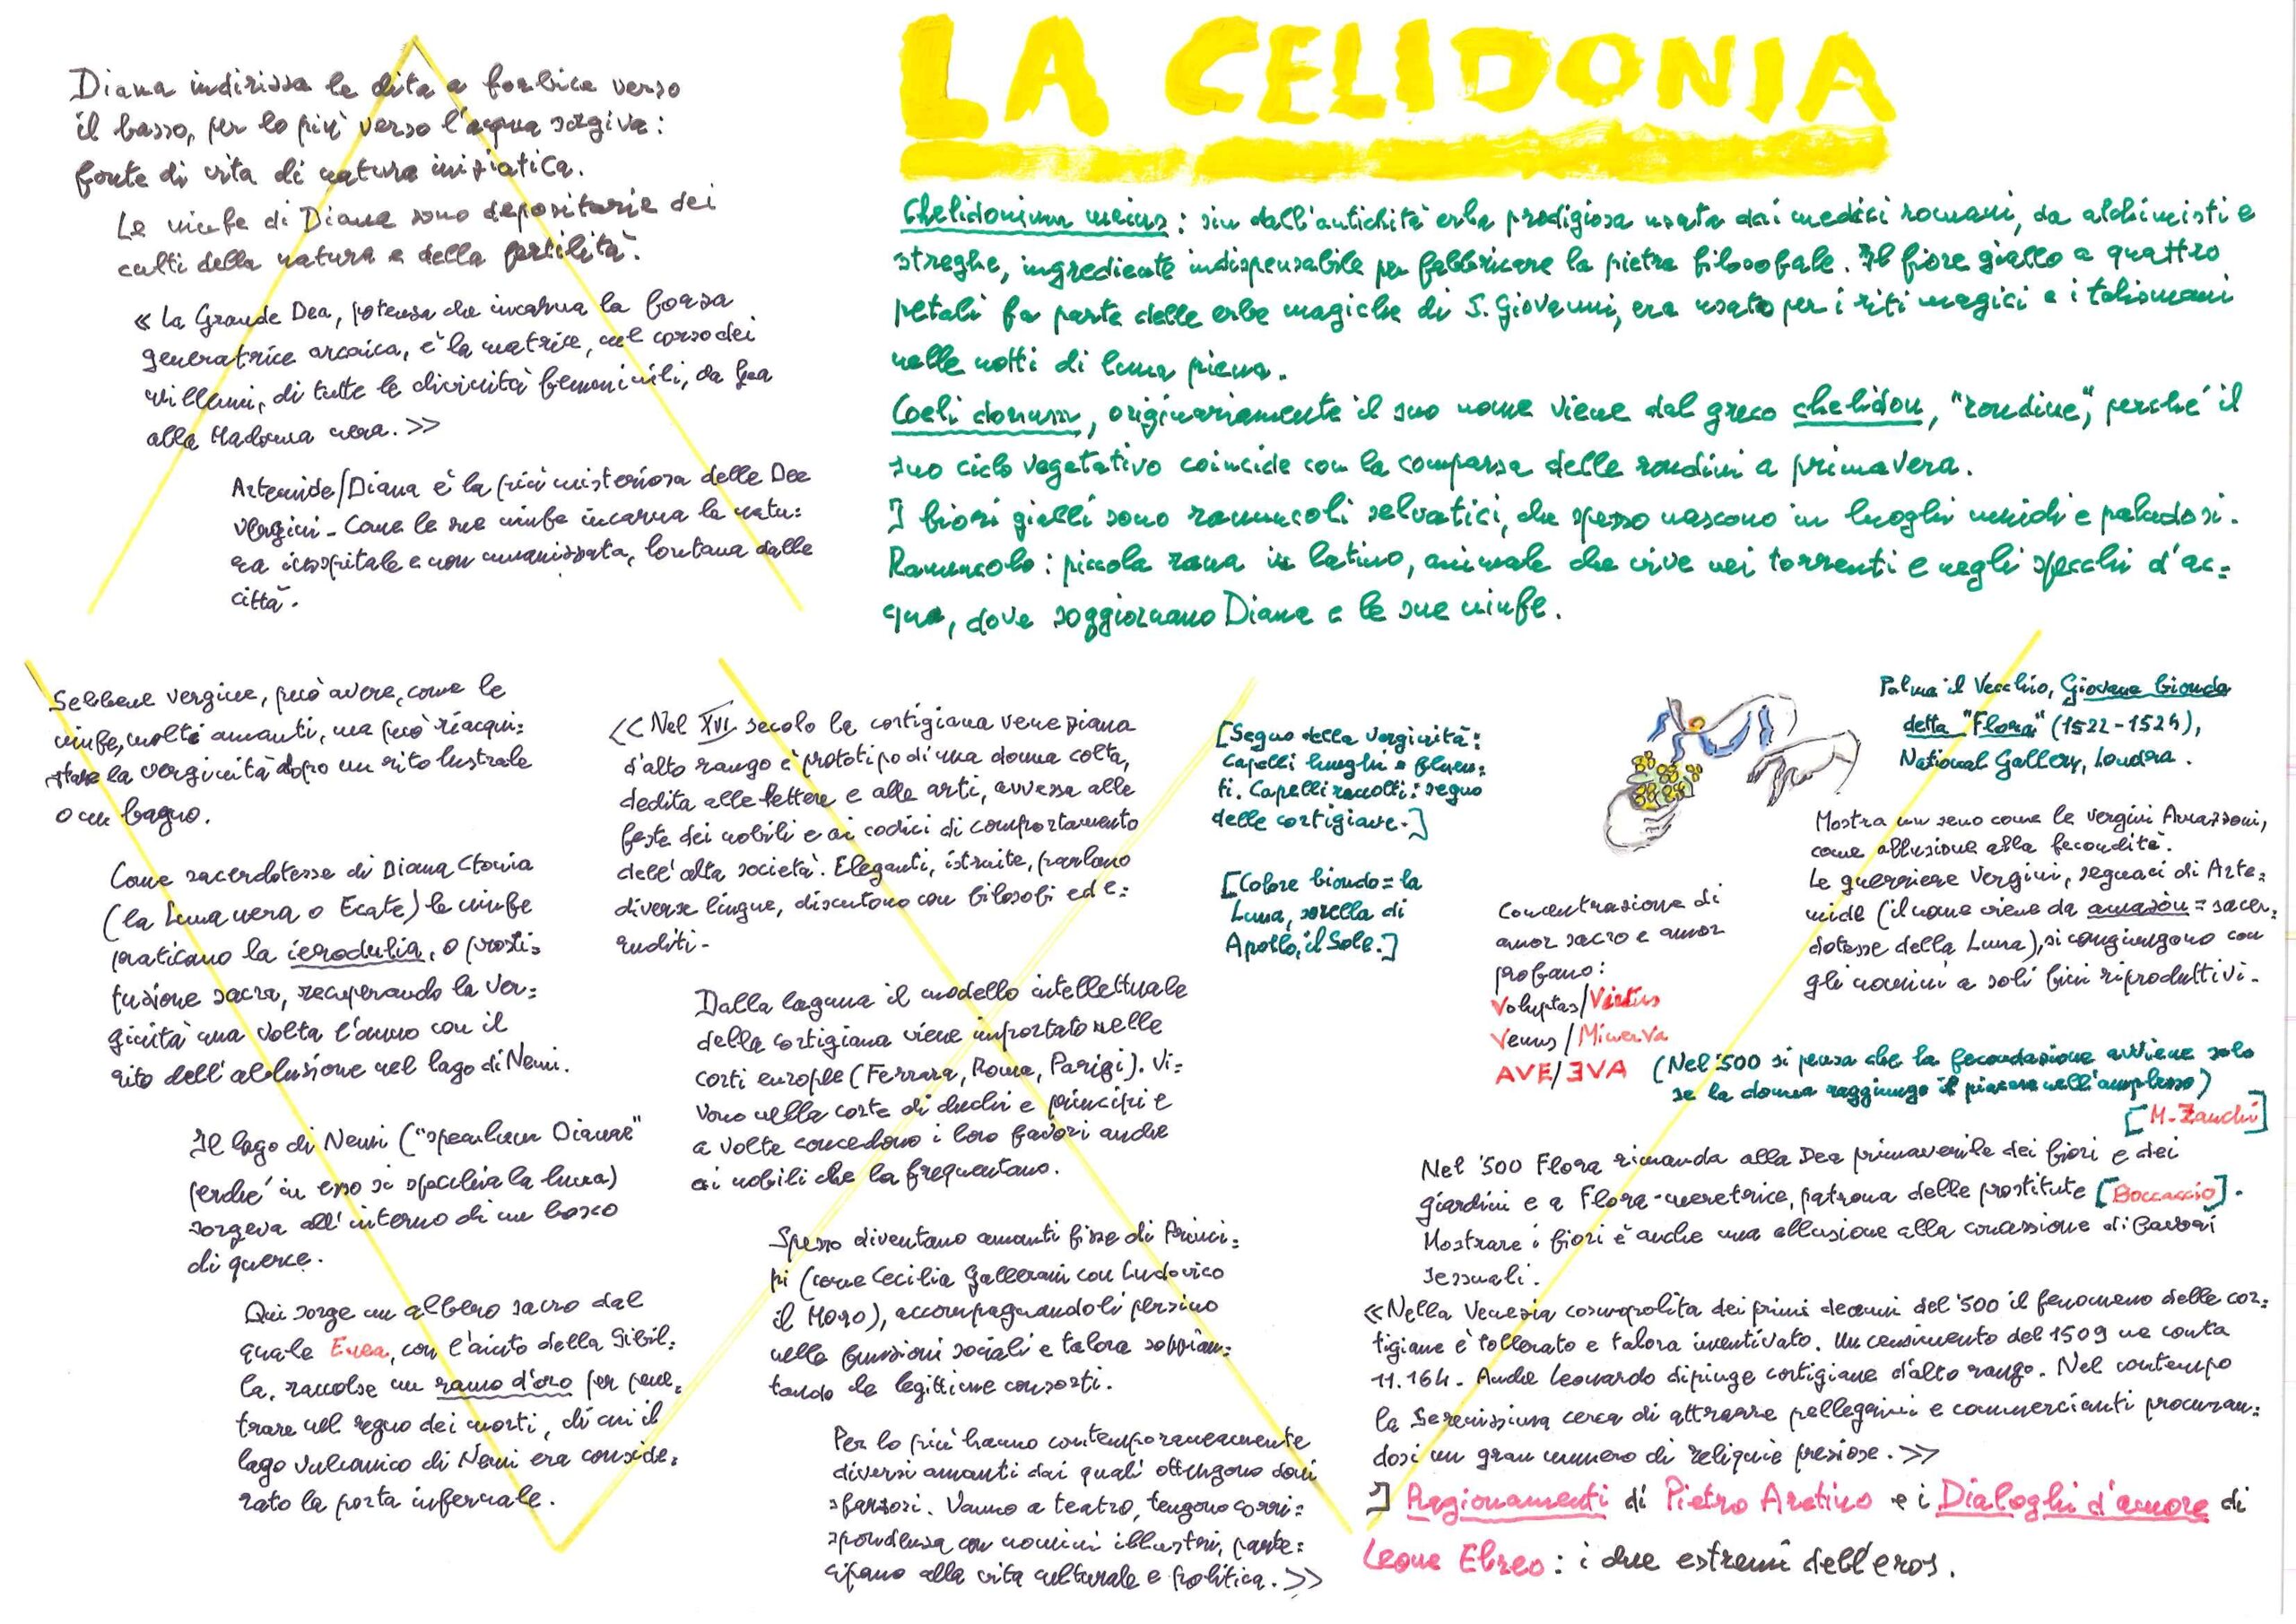 LA CELIDONIA
Diana indirizza le dita a forbice verso
il basso, per lo più verso l'acqua sorgiva:
fonte di vita di natura iniziatica.
Le ninfe di Diana sono depositarie dei
culti della natura e della fertilità.
«La Grande Dea, potenza che incarna la forza
generatrice arcaica, è la matrice, nel corso dei
millenni, di tutte le divinità femminili, da Gea
alla Madonna nera.»
Artemide/Diana è la più misteriosa delle Dee
vergini. Come le sue ninfe incarna la natu=
ra inospitale e non umanizzata, lontana dalle
città.
Chelidonium maius: sin dall'antichità erba prodigiosa usata dai medici romani, da alchimisti e
streghe, ingrediente indispensabile per fabbricare la pietra filosofale. Il fiore giallo a quattro
petali fa parte delle erbe magiche di S. Giovanni, era usato per i riti magici e i talismani
nelle notti di luna piena.
Coeli donum, originariamente il suo nome viene dal greco chelidon, "rondine", perché il
suo ciclo vegetativo coincide con la comparsa delle rondini a primavera.
I fiori gialli sono ranuncoli selvatici, che spesso nascono in luoghi umidi e paludosi.
Ranuncolo: piccola rana in latino, animale che vive nei torrenti e negli specchi d'ac=
qua, dove soggiornano Diana e le sue ninfe.
Sebbene vergine, può avere, come le
ninfe, molti amanti, ma può riacqui=
stare la verginità dopo un rito lustrale
o un bagno.
Come sacerdotesse di Diana Ctonia
(la Luna nera o Ecate) le ninfe
praticano la ierodulia, o prosti=
tuzione sacra, recuperando la ver=
ginità una volta l'anno con il
rito dell'abluzione nel lago di Nemi.
Il lago di Nemi ("speculum Dianae"
perché in esso si specchia la luna)
sorgeva all'interno di un bosco
di querce.
Qui sorge un albero sacro dal
quale Enea, con l'aiuto della Sibil=
la, raccolse un ramo d'oro per pene=
trare nel regno dei morti, di cui il
lago vulcanico di Nemi era conside=
rato la porta infernale.
«Nel XVI secolo la cortigiana veneziana
d'alto rango è prototipo di una donna colta,
dedita alle lettere e alle arti, avvezza alle
feste dei nobili e ai codici di comportamento
dell'alta società. Eleganti, istruite, parlano
diverse lingue, discutono con filosofi ed e=
ruditi.
Dalla laguna il modello intellettuale
della cortigiana viene importato nelle
corti europee (Ferrara, Roma, Parigi). Vi=
vono nella corte di duchi e principi e
a volte concedono i loro favori anche
ai nobili che la frequentano.
Spesso diventano amanti fisse di Princi=
pi (come Cecilia Gallerani con Ludovico
il Moro), accompagnandoli persino
nelle funzioni sociali e talora soppian=
tando le legittime consorti.
Per lo più hanno contemporaneamente
diversi amanti dai quali ottengono doni
sfarzosi. Vanno a teatro, tengono corri=
spondenza con uomini illustri, parte=
cipano alla vita culturale e politica.»
[Segno della verginità:
capelli lunghi e fluen=
ti. Capelli raccolti: segno
delle cortigiane.]
[Colore biondo = la
Luna, sorella di
Apollo, il Sole.]
Palma il Vecchio, Giovane bionda
detta "Flora" (1522-1524),
National Gallery, Londra.
Mostra un seno come le vergini Amazzoni,
come allusione alla fecondità.
Le guerriere vergini, seguaci di Arte=
mide (il nome viene da amazòn = sacer=
dotesse della Luna), si congiungono con
gli uomini a soli fini riproduttivi.
Concentrazione di
amor sacro e amor
profano:
Voluptas/Virtus
Venus/Minerva
AVE/EVA
(Nel '500 si pensa che la fecondazione avviene solo
se la donna raggiunge il piacere nell'amplesso)
[M. Zanchi]
Nel '500 Flora rimanda alla Dea primaverile dei fiori e dei
giardini e a Flora-meretrice, patrona delle prostitute [Boccaccio].
Mostrare i fiori è anche una allusione alla concessione di favori
sessuali.
«Nella Venezia cosmopolita dei primi decenni del '500 il fenomeno delle cor=
tigiane è tollerato e talora incentivato. Un censimento del 1509 ne conta
11.164. Anche Leonardo dipinge cortigiane d'alto rango. Nel contempo
la Serenissima cerca di attrarre pellegrini e commercianti procuran=
dosi un gran numero di reliquie preziose.»
I Ragionamenti di Pietro Aretino e i Dialoghi d'amore di
Leone Ebreo: i due estremi dell'eros.